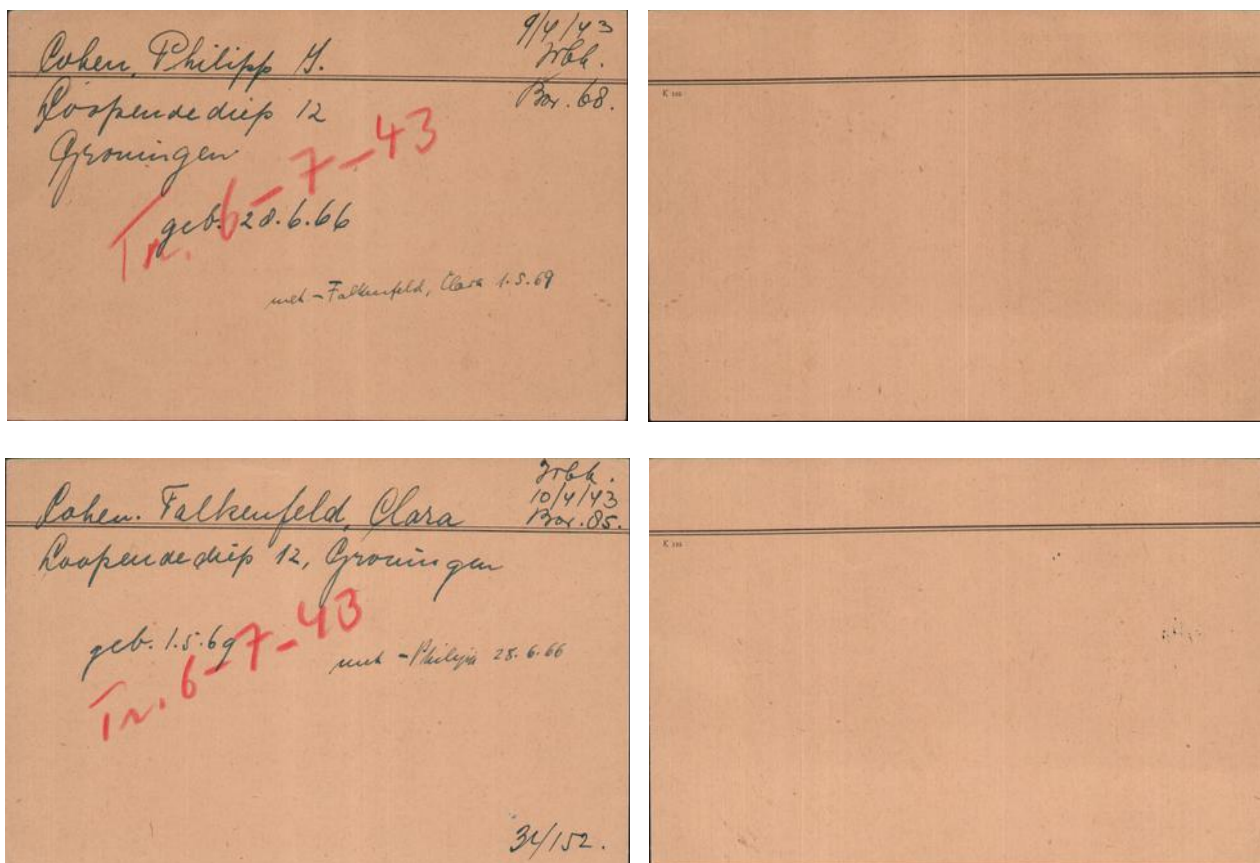 Cohen, Philipp J.
9/4/43
Wbk.
Bar. 68.
Loopendediep 12
Groningen
Tr. 6-7-43
geb. 28.6.66
met - Falkenfeld, Clara 1.5.69
K
Cohen. Falkenfeld, Clara
Wbk.
10/4/43
Bar. 85.
Loopendediep 12, Groningen
geb. 1.5.69
Tr. 6-7-43
met - Philipp 28.6.66
34/152.
K